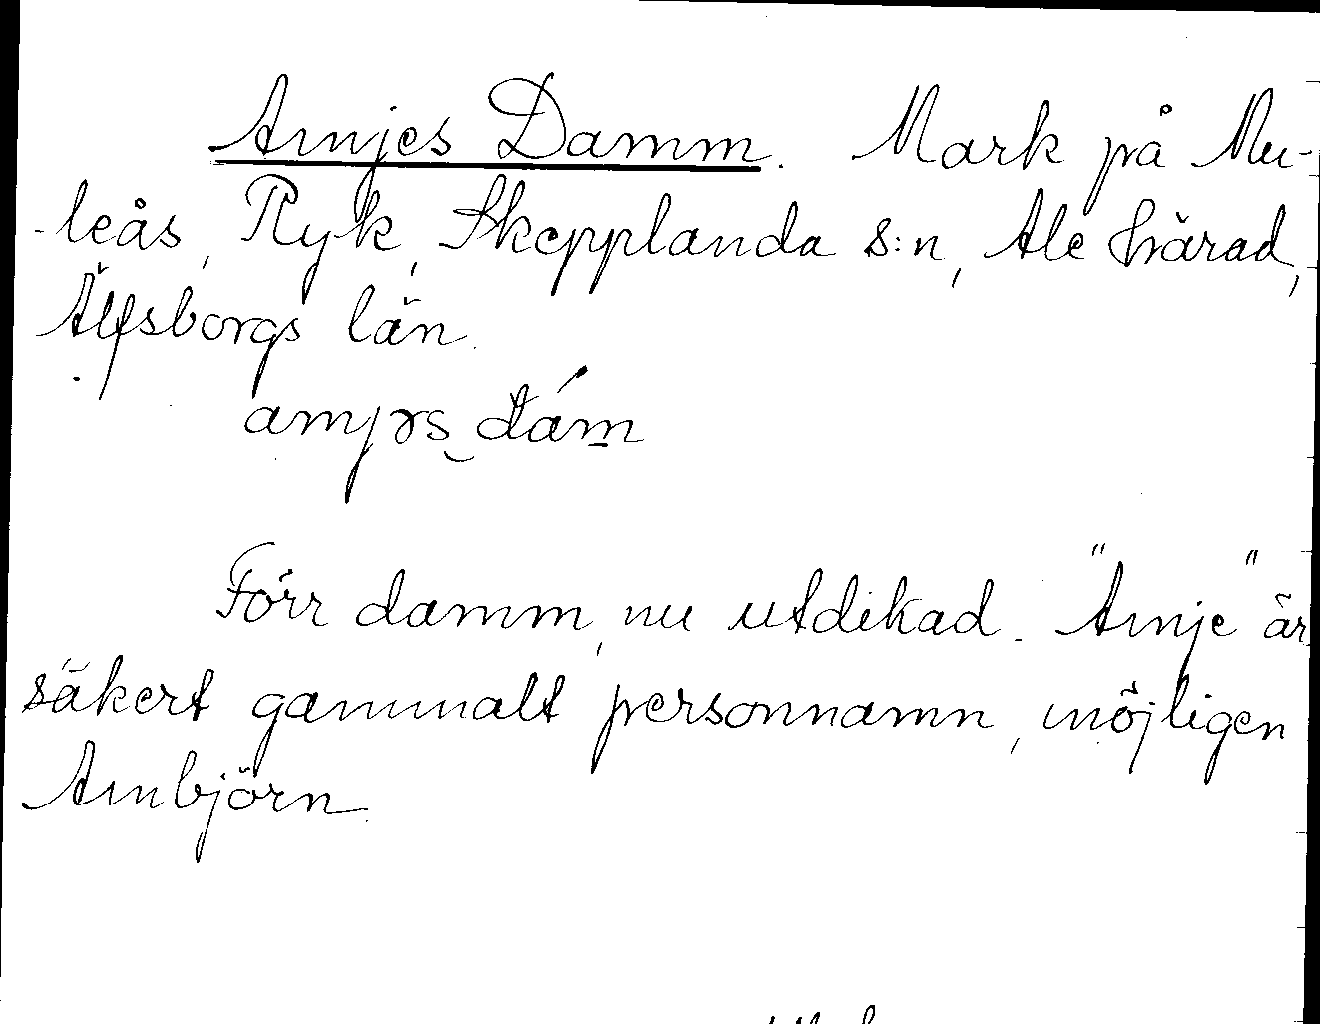 Arnjes Damm. Mark på Mu-
-leås, Ryk, Skepplanda s:n, Ale härad,
Älfsborgs län.
Förr damm, nu utdikad. "Arnje" är
säkert gammalt personnamn, möjligen
Arnbjörn.